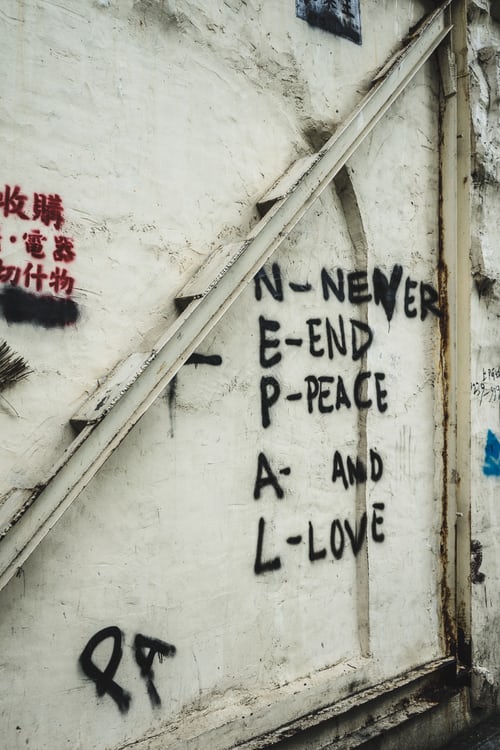 收購
·電器
切什物
N-NEVER
E-END
P-PEACE
A- AND
L-LOVE